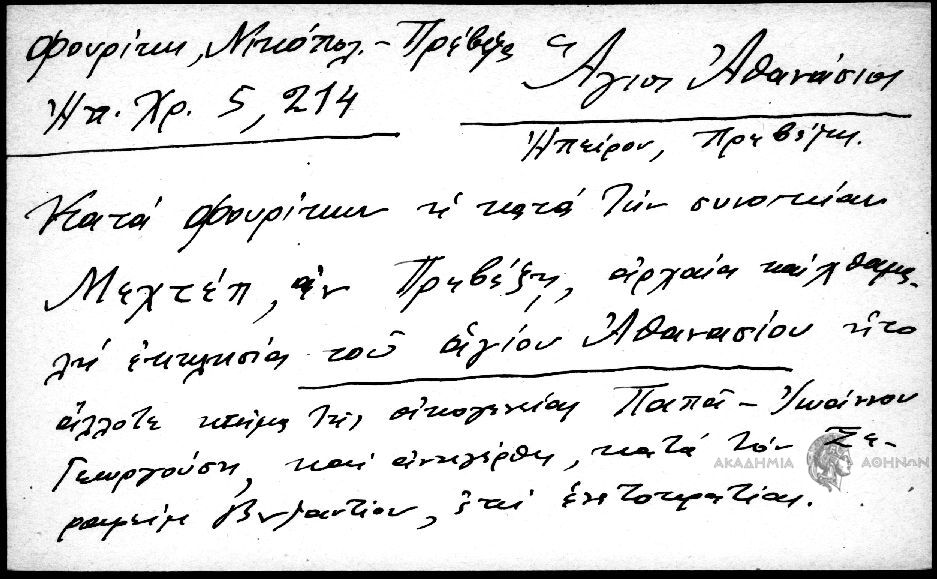 Φουρίκη, Νικόπολ. - Πρέβεζα
Ἠπ. Χρ. 5, 214
Ἅγιος Ἀθανάσιος
Ἠπείρου, Πρεβέζης.
Κατά Φουρίκην ἡ κατά τήν συνοικίαν
Μεχτέπ, ἐν Πρεβέζῃ, ἀρχαία καί χθαμα-
λή ἐκκλησία τοῦ ἁγίου Ἀθανασίου ἦτο
ἄλλοτε κτῆμα τῆς οἰκογενείας Παπᾶ - Ἰωάννου
Γεωργούση, καί ἀνηγέρθη, κατά τόν Σε-
ραφείμ Βυζάντιον, ἐπί ἑνετοκρατίας.
ΑΚΑΔΗΜΙΑ ΑΘΗΝΩΝ